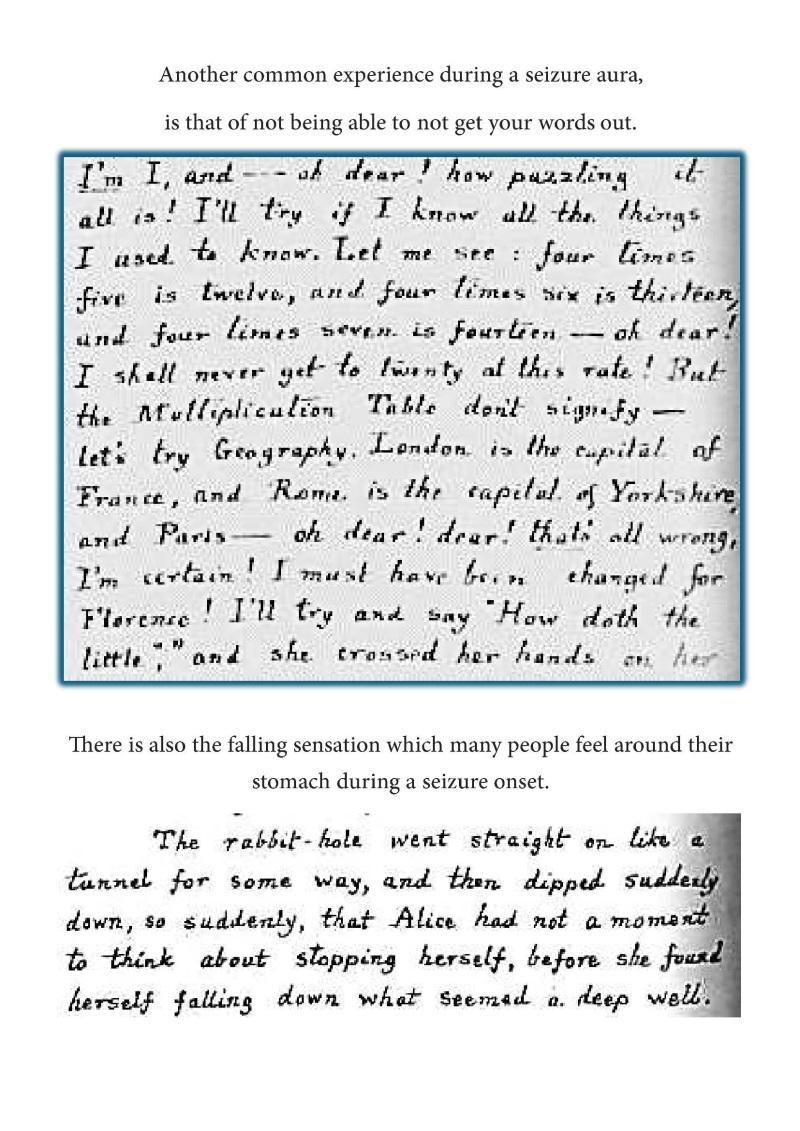 Another common experience during a seizure aura,
is that of not being able to not get your words out.
I'm I, and --- oh dear! how puzzling it
all is! I'll try if I know all the things
I used to know. Let me see: four times
five is twelve, and four times six is thirteen,
and four times seven is fourteen — oh dear!
I shall never get to twenty at this rate! But
the Multiplication Table don't signify —
let's try Geography. London is the capital of
France, and Rome is the capital of Yorkshire,
and Paris — oh dear! dear! that's all wrong,
I'm certain! I must have been changed for
Florence! I'll try and say "How doth the
little"," and she crossed her hands on her
There is also the falling sensation which many people feel around their
stomach during a seizure onset.
The rabbit-hole went straight on like a
tunnel for some way, and then dipped suddenly
down, so suddenly, that Alice had not a moment
to think about stopping herself, before she found
herself falling down what seemed a deep well.